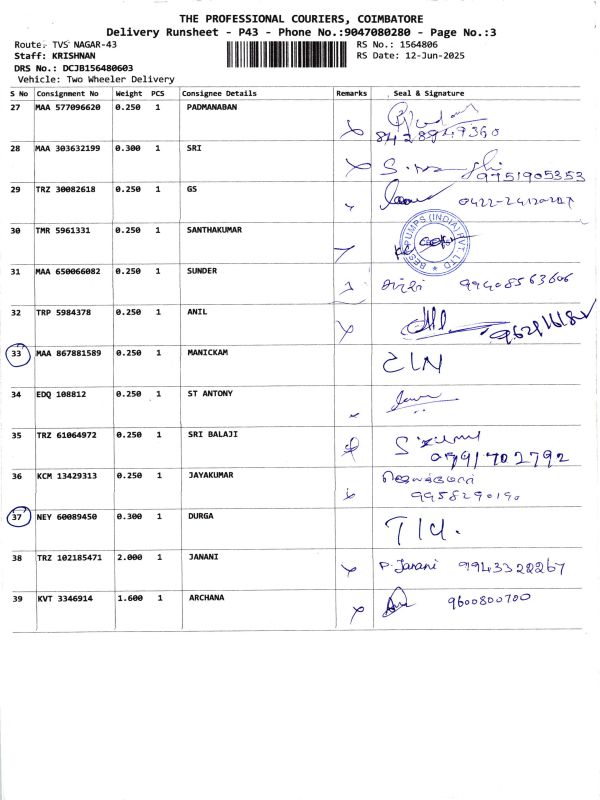 THE PROFESSIONAL COURIERS, COIMBATORE
Delivery Runsheet - P43 - Phone No.:9047080280 - Page No.:3
Route: TVS NAGAR-43
RS No.: 1564806
Staff: KRISHNAN
RS Date: 12-Jun-2025
DRS No.: DCJB156480603
Vehicle: Two Wheeler Delivery
S No Consignment No Weight PCS Consignee Details Remarks Seal & Signature
27 MAA 577096620 0.250 1 PADMANABAN
8428947360
28 MAA 303632199 0.300 1 SRI
9751905353
29 TRZ 30082618 0.250 1 GS
30 TMR 5961331 0.250 1 SANTHAKUMAR
PUMPS (INDIA) PVT LTD
31 MAA 650066082 0.250 1 SUNDER
99408563606
32 TRP 5984378 0.250 1 ANIL
33 MAA 867881589 0.250 1 MANICKAM
34 EDQ 108812 0.250 1 ST ANTONY
35 TRZ 61064972 0.250 1 SRI BALAJI
36 KCM 13429313 0.250 1 JAYAKUMAR
ஜெயக்குமார்
9958290190
37 NEY 60089450 0.300 1 DURGA
38 TRZ 102185471 2.000 1 JANANI P. Janani 9943322267
39 KVT 3346914 1.600 1 ARCHANA 9600800700